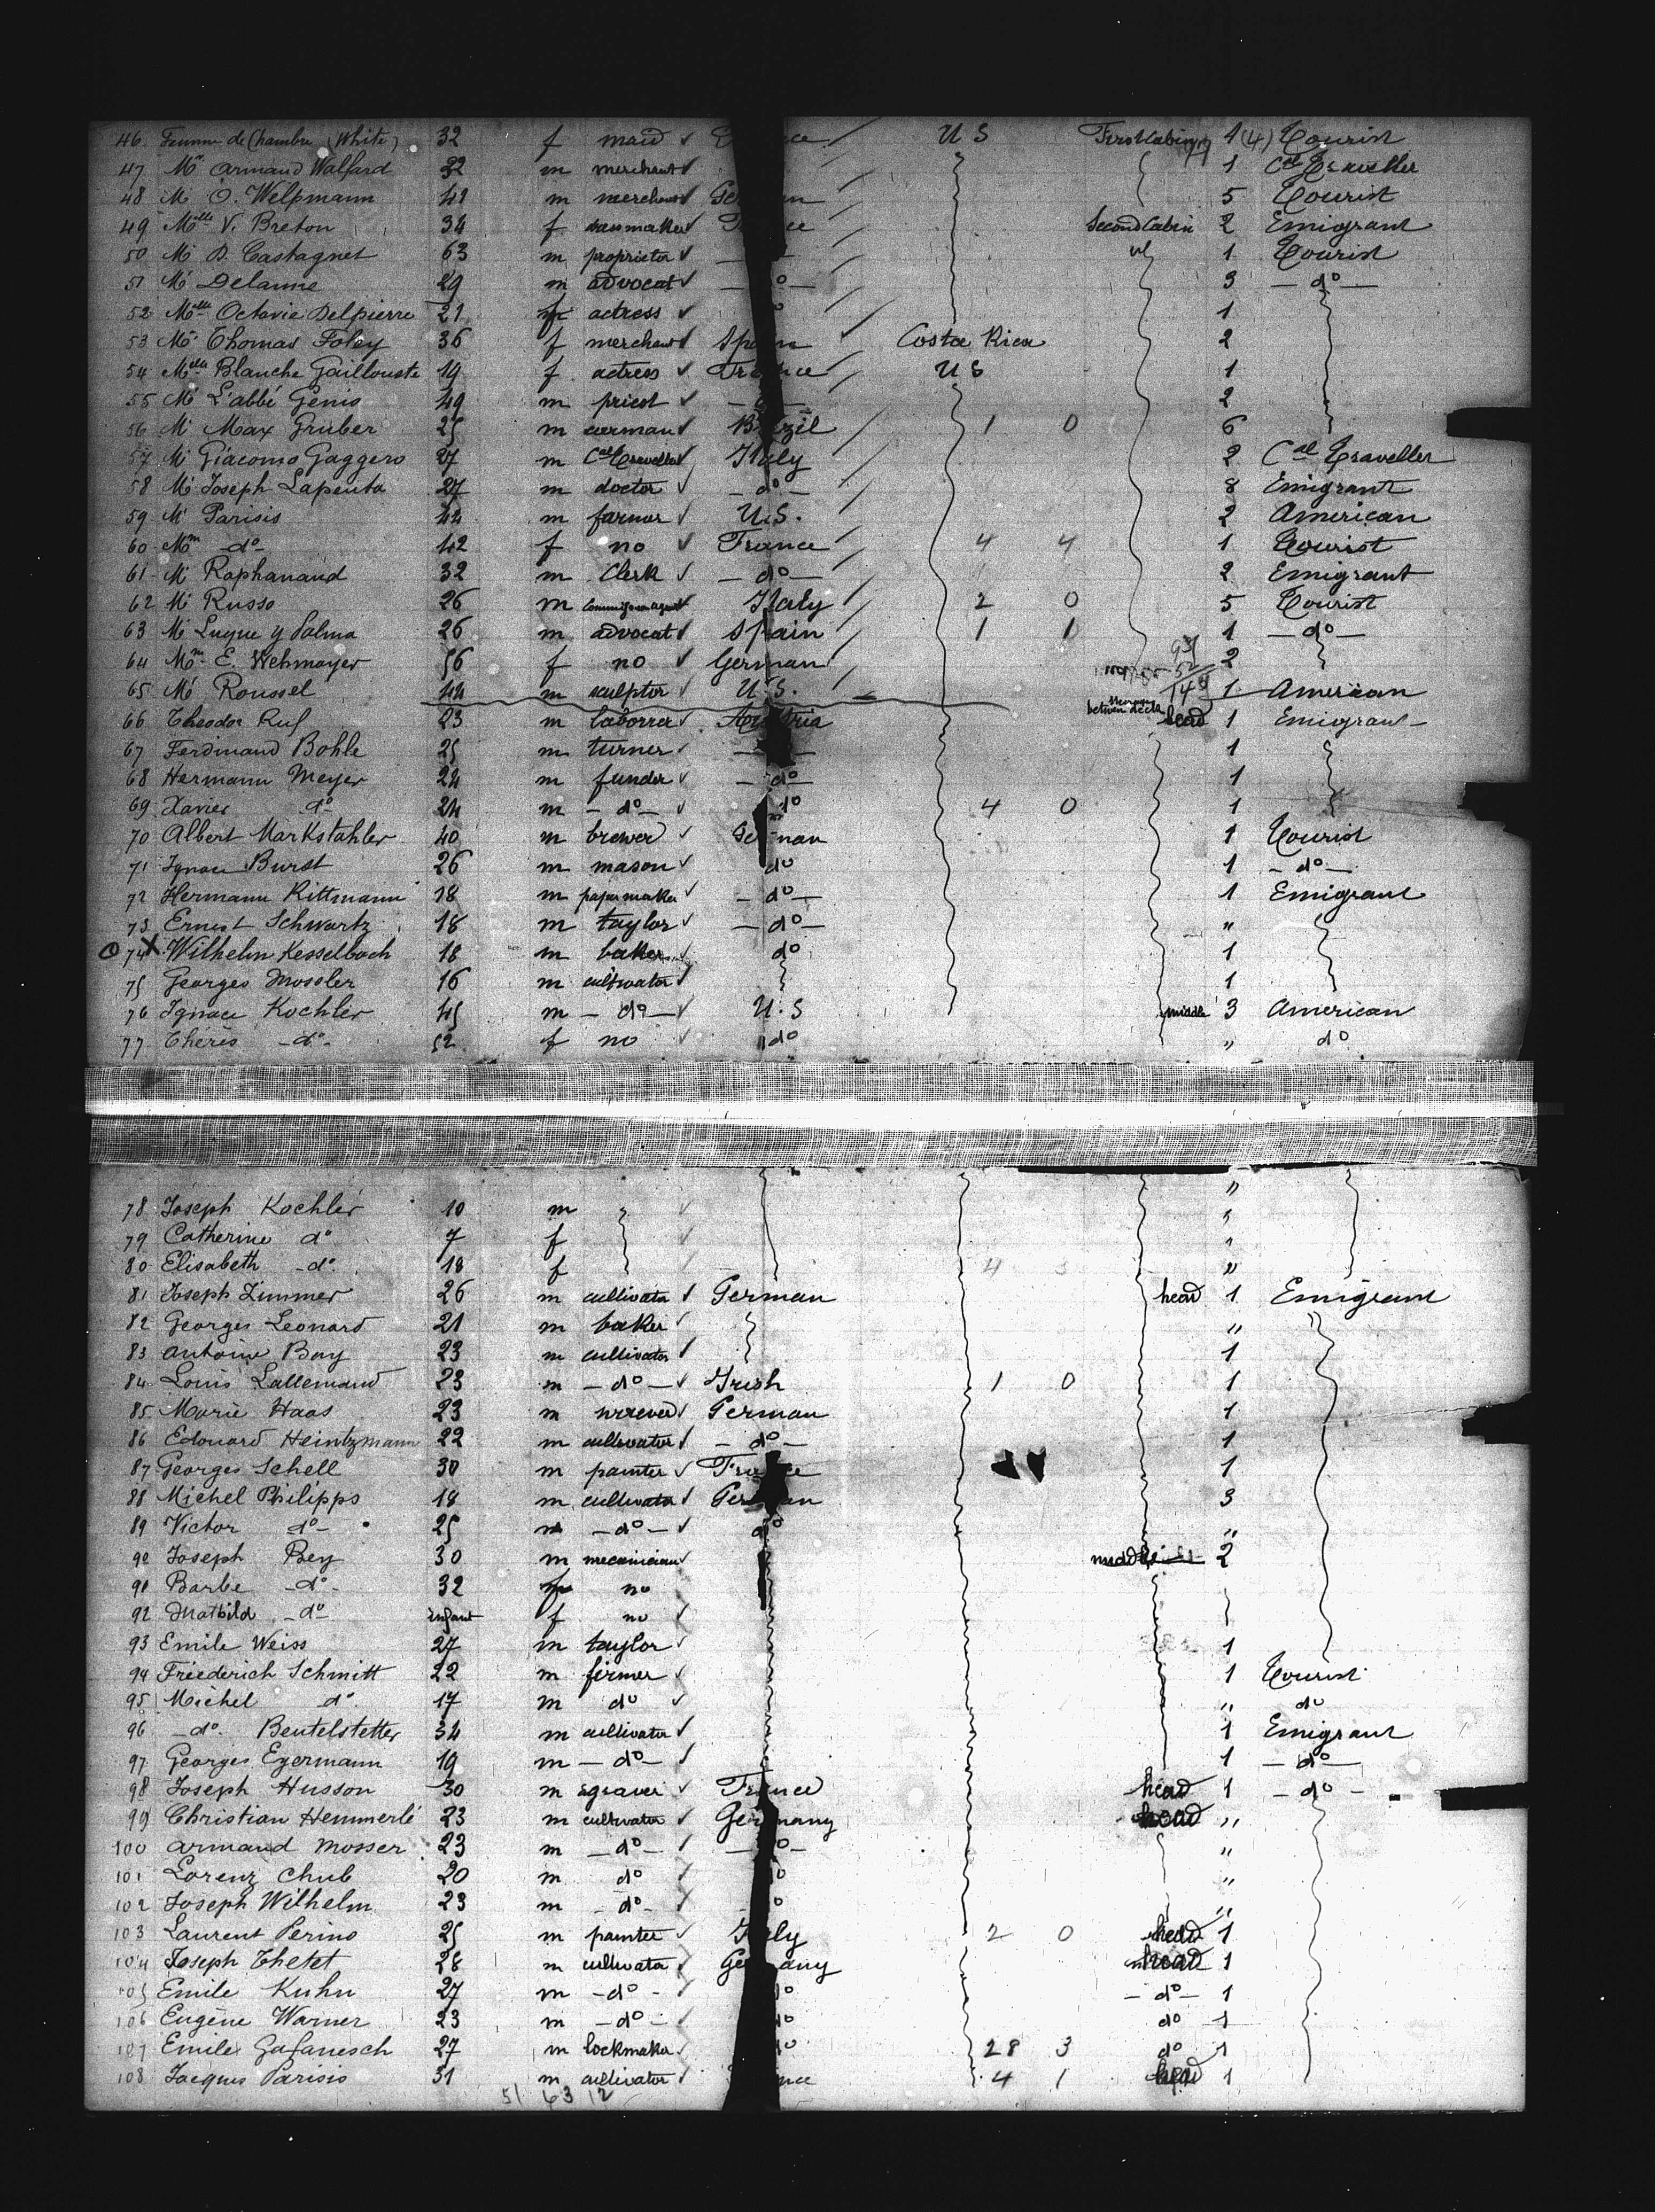 46 Femme de Chambre (White) 32 f maid ce U S First Cabin 1 (4) Tourist
47 Mr Armand Walfard 32 m merchant 1 Cal Traveller
48 M O. Welpmann 41 m merchant Ge n 5 Tourist
49 Melle V. Breton 34 f ce Second Cabin 2 Emigrant
50 M D. Castagnet 63 m proprietor 1 Tourist
51 Mr Delanne 29 m advocat — o — 3 — do —
52 Melle Octavie Delpierre 21 f actress 1
53 Mr Thomas Foley 36 f merchant Spain Costa Rica 2
54 Melle Blanche Gaillouste 19 f actress France U S 1
55 Mr L'abbé Génis 49 m priest 2
56 Mr Max Gruber 25 m Brazil 1 0 6
57 Mr Giacomo Gaggero 27 m Cal Traveller Italy 2 Cal Traveller
58 Mr Joseph Lapenta 27 m doctor — do — 8 Emigrant
59 Mr Parisis 44 m farmer U.S. 2 American
60 Mm do 42 f no France 4 4 1 Tourist
61 Mr Raphanaud 32 m Clerk — do — 2 Emigrant
62 Mr Russo 26 m Italy 2 0 5 Tourist
63 Mr Luque y Palma 26 m advocat Spain 1 1 1 — do —
64 Mm E. Wehmayer 56 f no German 2
65 Mr Roussel 44 m sculptor U.S. 149 1 American
66 Theodor Ruf 23 m laborrer Austria between decks head 1 Emigrant
67 Ferdinand Bohle 25 m turner 1
68 Hermann Meyer 24 m funder — do — 1
69 Xavier do 24 m — do — do 4 0 1
70 Albert Markstahler 40 m brewer German 1 Tourist
71 Ignace Burst 26 m mason do 1 — do —
72 Hermann Rittmann 18 m papermaker — do — 1 Emigrant
73 Ernest Schwartz 18 m taylor — do — "
74 X Wilhelm Kesselbach 18 m baker do 1
75 Georges Mossler 16 m cultivator 1
76 Ignace Kochler 45 m — do — U.S middle 3 American
77 Thérès — do — 52 f no do " do
78 Joseph Kochler 10 m "
79 Catherine do 7 f "
80 Elisabeth — do 18 f 4 3 "
81 Joseph Zimmer 26 m cultivator German head 1 Emigrant
82 Georges Leonard 21 m baker "
83 Antoine Bay 23 m cultivator 1
84 Louis Lallemand 23 m — do — Irish 1 0 1
85 Marie Haas 23 m German 1
86 Edouard Heintzmann 22 m cultivator — do — 1
87 Georges Schell 30 m painter France 1
88 Michel Philipps 18 m cultivator German 3
89 Victor do — 25 m — do — do "
90 Joseph Bey 30 m mecanician middle 2
91 Barbe — do — 32 f no
92 Mathild — do infant f no
93 Emile Weiss 27 m taylor 1
94 Friederich Schmitt 22 m firmer 1 Tourist
95 Michel do 17 m do " do
96 — do Beutelstetter 34 m cultivator 1 Emigrant
97 Georges Egermann 19 m — do — 1 — do —
98 Joseph Husson 30 m France head 1 — do —
99 Christian Hemmerlé 23 m cultivator Germany head "
100 Armand Mosser 23 m — do — "
101 Lorenz Chub 20 m do "
102 Joseph Wilhelm 23 m — do — "
103 Laurent Perino 25 m painter Italy 2 0 head 1
104 Joseph Thetet 28 m cultivator Germany head 1
105 Emile Kuhn 27 m — do — do — do — 1
106 Eugène Warner 23 m — do — do do 1
107 Emile Gafanesch 27 m lockmaker 28 3 do 1
108 Jacques Parisis 31 m cultivator nce 4 1 head 1
51 63 12